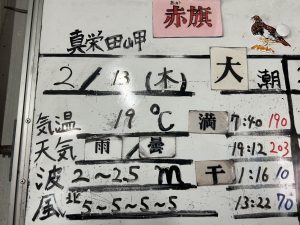 赤旗
真栄田岬
2/13(木) 大潮
気温 19℃ 満 7:40 190
天気 雨 曇 19:12 203
波 2～2.5m 干 1:16 10
風 北 5～5～5～5 13:22 70